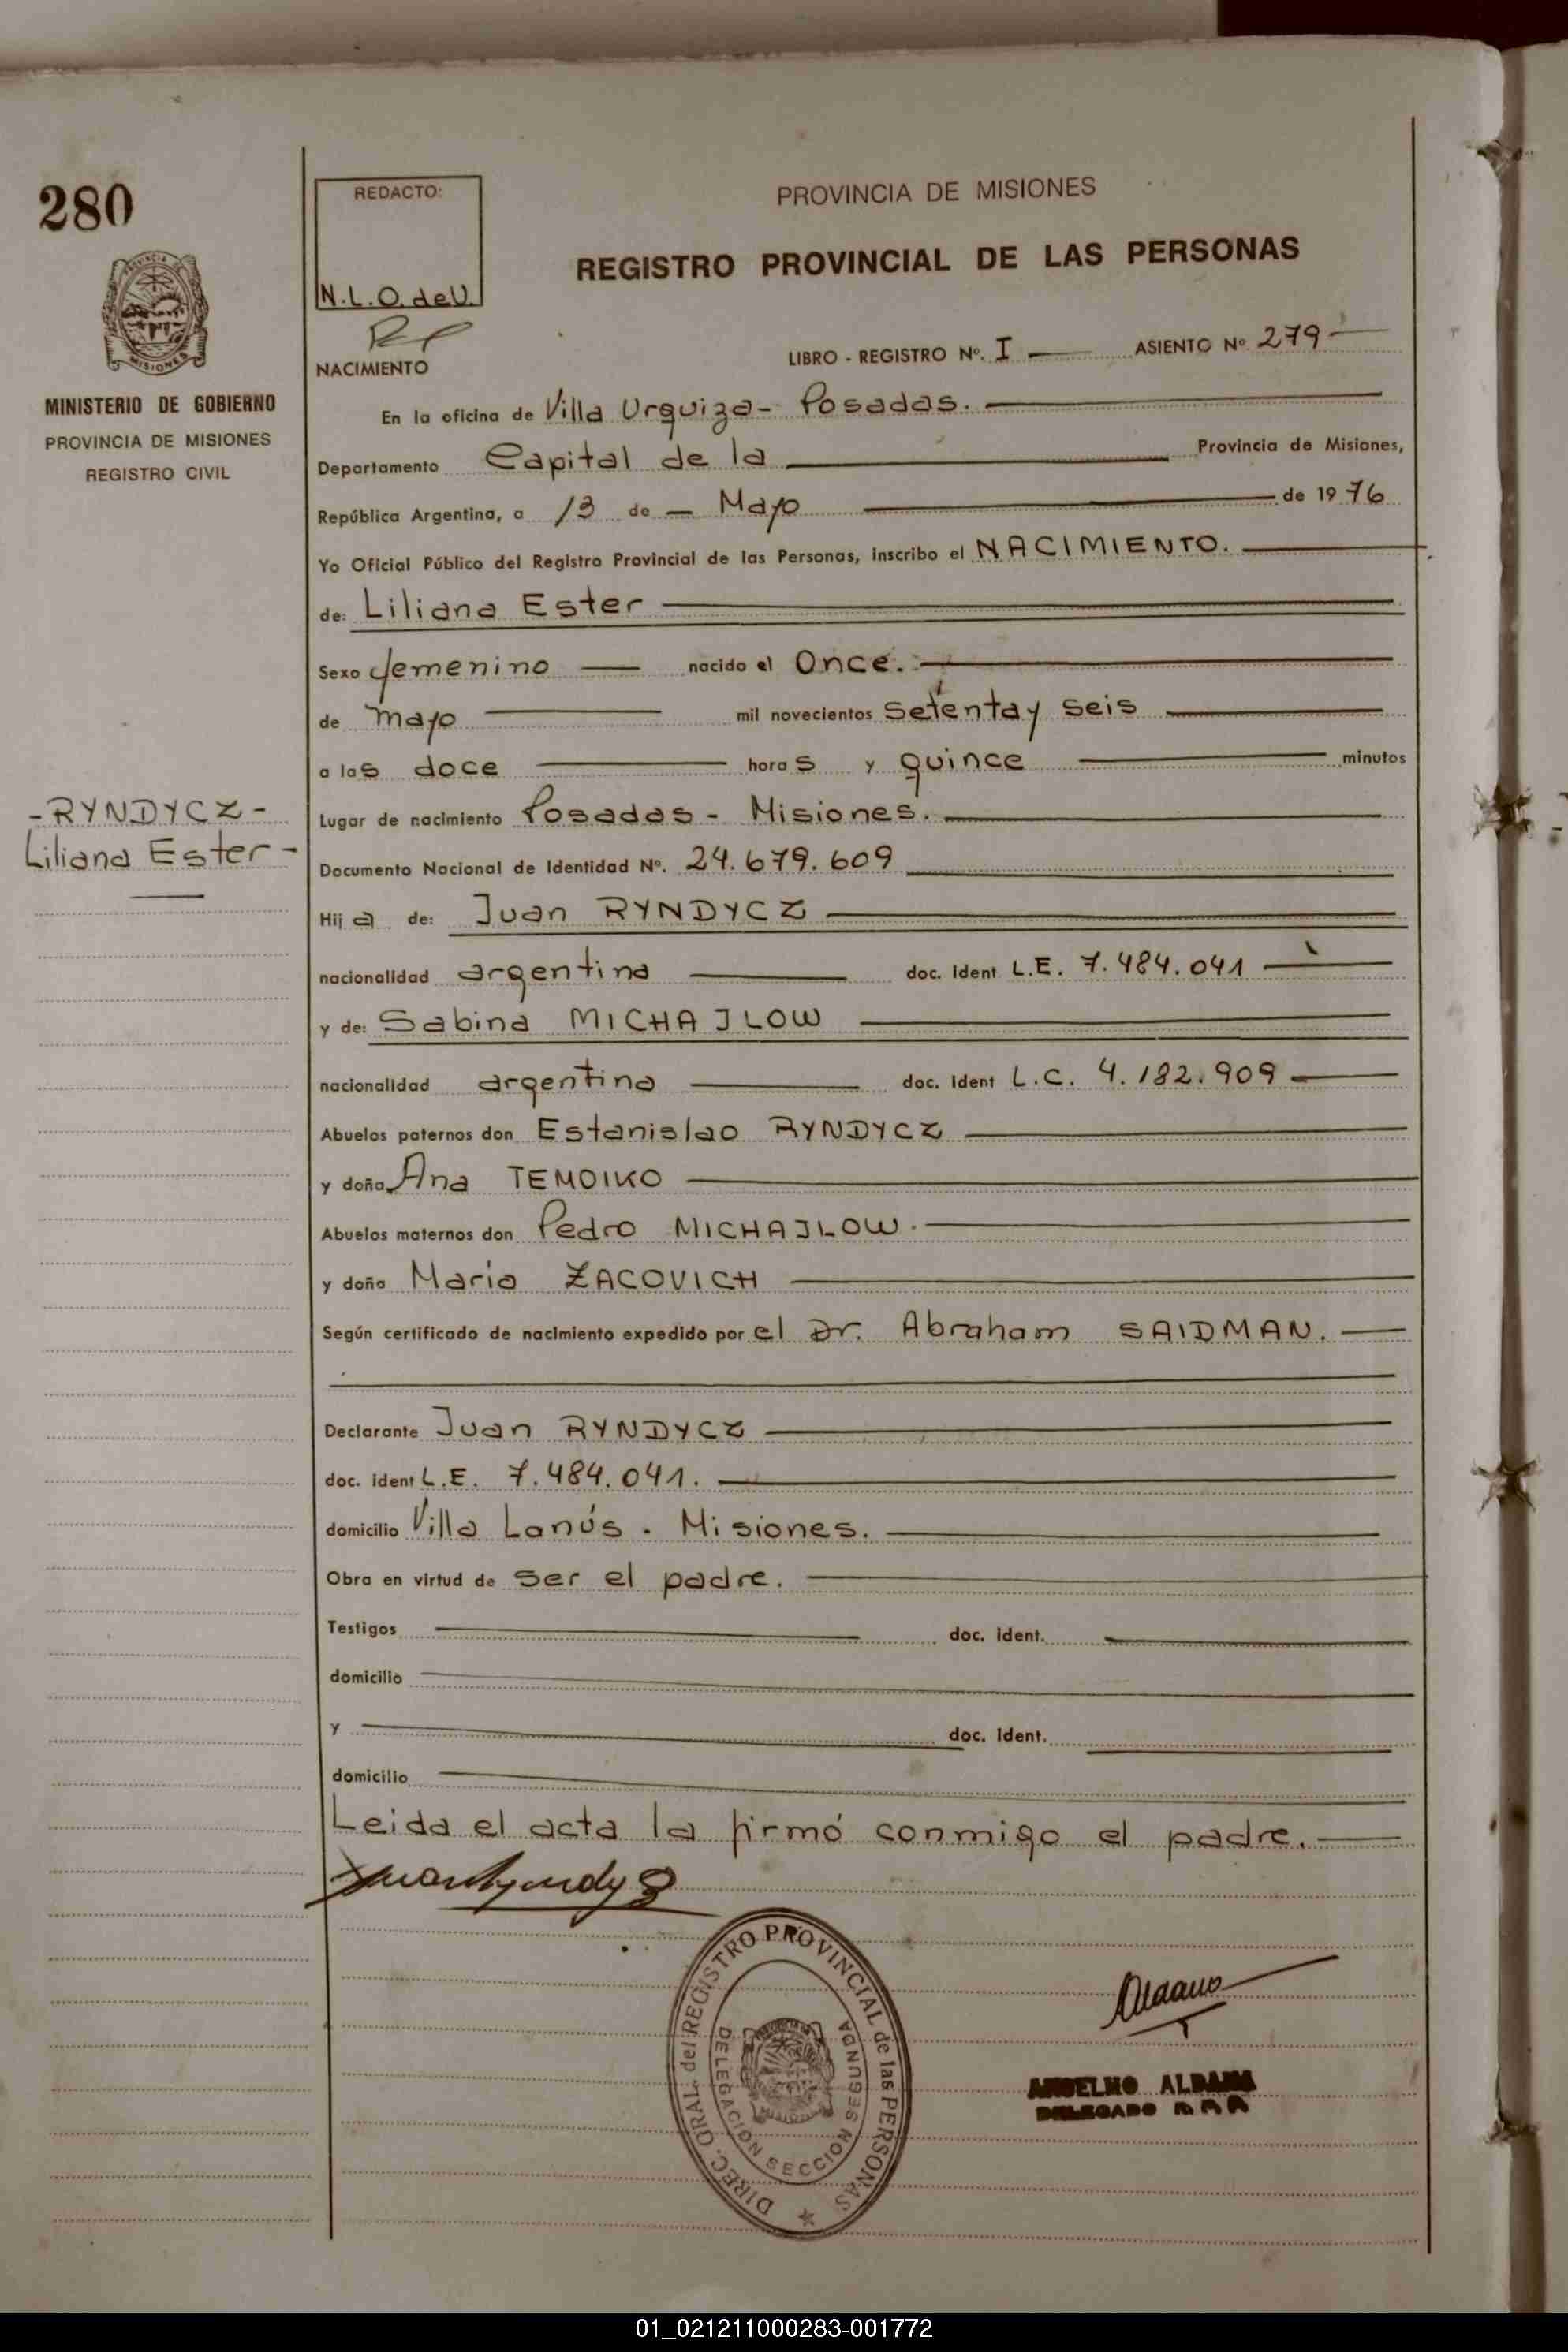 280
REDACTO:
N.L.O. de U.
PROVINCIA DE MISIONES
REGISTRO PROVINCIAL DE LAS PERSONAS
PROVINCIA DE
MISIONES
MINISTERIO DE GOBIERNO
PROVINCIA DE MISIONES
REGISTRO CIVIL
NACIMIENTO
LIBRO - REGISTRO Nº. I ASIENTO Nº 279
En la oficina de Villa Urquiza - Posadas.
Departamento Capital de la Provincia de Misiones,
República Argentina, a 13 de Mayo de 1976
Yo Oficial Público del Registro Provincial de las Personas, inscribo el NACIMIENTO.
de: Liliana Ester
Sexo femenino nacido el Once.
de mayo mil novecientos setenta y seis
a las doce horas y quince minutos
- RYNDYCZ -
Liliana Ester -
Lugar de nacimiento Posadas - Misiones.
Documento Nacional de Identidad Nº. 24.679.609
Hija de: Juan RYNDYCZ
nacionalidad argentina doc. ident L.E. 7.484.041
y de: Sabina MICHAJLOW
nacionalidad argentina doc. ident L.C. 4.182.909
Abuelos paternos don Estanislao RYNDYCZ
y doña Ana TEMOIKO
Abuelos maternos don Pedro MICHAJLOW.
y doña María ZACOVICH
Según certificado de nacimiento expedido por el Dr. Abraham SAIDMAN.
Declarante Juan RYNDYCZ
doc. ident L.E. 7.484.041.
domicilio Villa Lanús. Misiones.
Obra en virtud de ser el padre.
Testigos doc. ident.
domicilio
y doc. ident.
domicilio
Leida el acta la firmó conmigo el padre.
DIREC. GRAL. del REGISTRO PROVINCIAL de las PERSONAS
DELEGACION SECCION SEGUNDA
ANSELMO ALDANA
DELEGADO
01_021211000283-001772